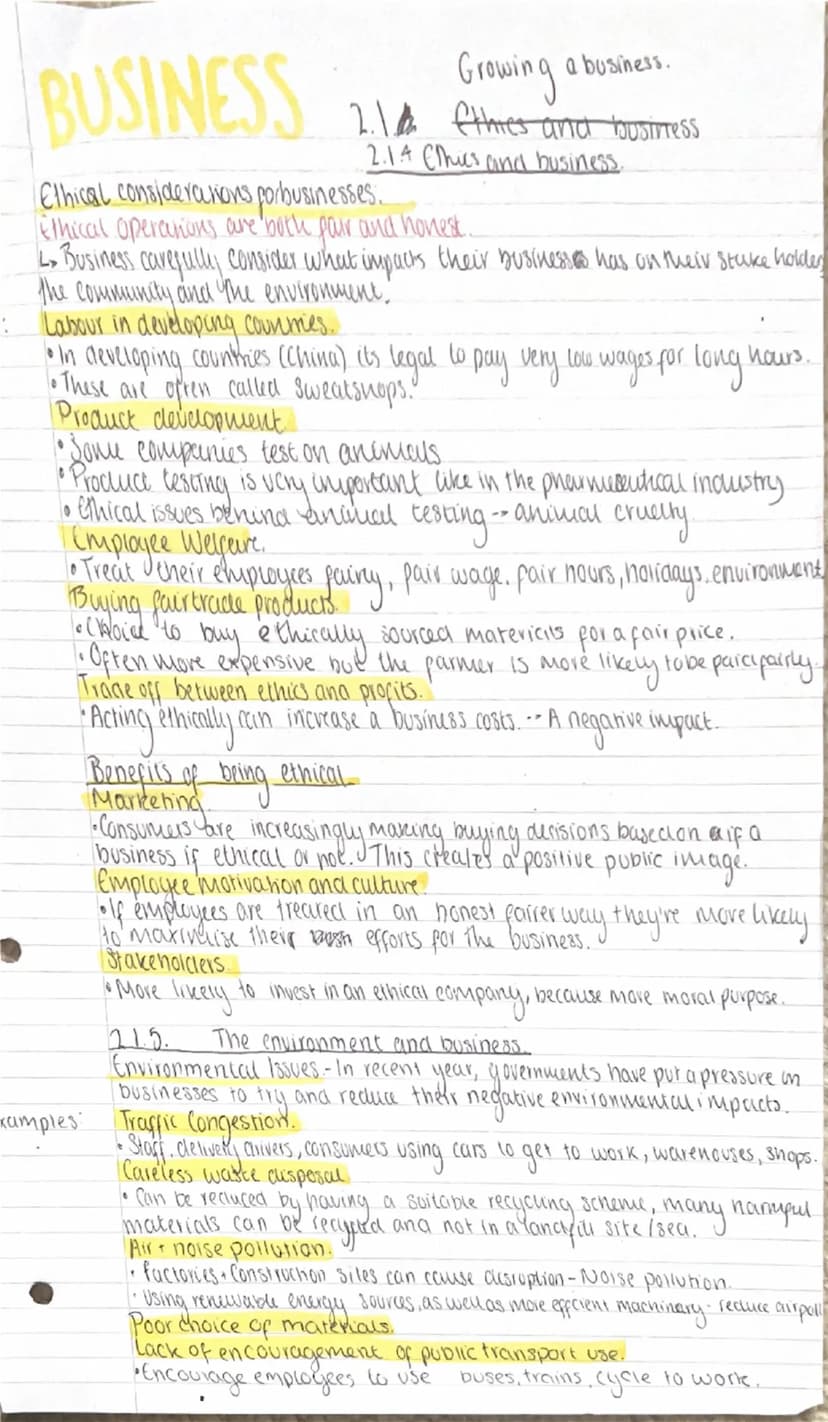 BUSINESS
Growing a business.
2.1 Ethics and business
2.1.4 Ethics and business.
Ethical considerations for businesses.
Ethical operations are both fair and honest.
↳ Business carefully consider what impacts their business has on their stake holder
the community and the environment.
Labour in developing countries.
• In developing countries (China) its legal to pay very low wages for long hours.
• These are often called sweatshops.
Product development
• Some companies test on animals
• Product testing is very important like in the pharmaceutical industry
• Ethical issues behind animal testing -- animal cruelty
Employee Welfare.
• Treat their employees fairly, fair wage. fair hours, holidays. environment
Buying fairtrade products.
• Choice to buy ethically sourced materials for a fair price.
• Often more expensive but the farmer is more likely to be paid fairly.
Trade off between ethics and profits.
• Acting ethically can increase a business costs. -- A negative impact.
Benefits of being ethical
Marketing
• Consumers are increasingly making buying decisions based on if a
business if ethical or not. This creates a positive public image.
Employee motivation and culture.
• If employees are treated in an honest fairer way they're more likely
to maximise their efforts for the business.
Stakeholders.
• More likely to invest in an ethical company, because more moral purpose.
2.1.5. The environment and business
Environmental Issues - In recent year, governments have put a pressure on
businesses to try and reduce their negative environmental impacts.
xamples: Traffic Congestion.
• Staff, delivery drivers, consumers using cars to get to work, warehouses, shops.
Careless waste disposal
• Can be reduced by having a suitable recycling scheme, many harmful
materials can be recycled and not in a landfill site/sea.
Air + noise pollution.
• Factories + Construction sites can cause disruption - Noise pollution.
• Using renewable energy sources, as well as more efficient machinery - reduce air poll
Poor choice of materials.
Lack of encouragement of public transport use.
• Encourage employees to use buses, trains, cycle to work.